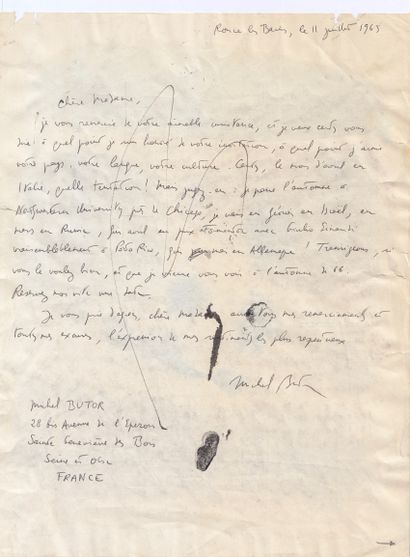 le 11 juillet 1965
Chère Madame,
je vous remercie de votre aimable insistance, et je veux certes vous
dire à quel point je suis honoré de votre invitation, à quel point j'aime
votre pays, votre langue, votre culture. Certes, le mois d'avril en
Italie, quelle tentation! Mais jugez-en: je passe l'automne à
Northwestern University près de Chicago, je vais en février en
mars en Russie, avril au prix Formentor avec Giulio Einaudi
vraisemblablement à Porto Rico, puis mai en Allemagne! , si
vous le voulez bien, que je vienne vous voir à l'automne de 66.
Réservez-moi vite une date.
Je vous prie d'agréer, chère madame, avec tous mes remerciements et
toutes mes excuses, l'expression de mes sentiments les plus respectueux
Michel Butor
Michel BUTOR
28 bis Avenue de l'Eperon
Sainte Geneviève des Bois
Seine et Oise
FRANCE